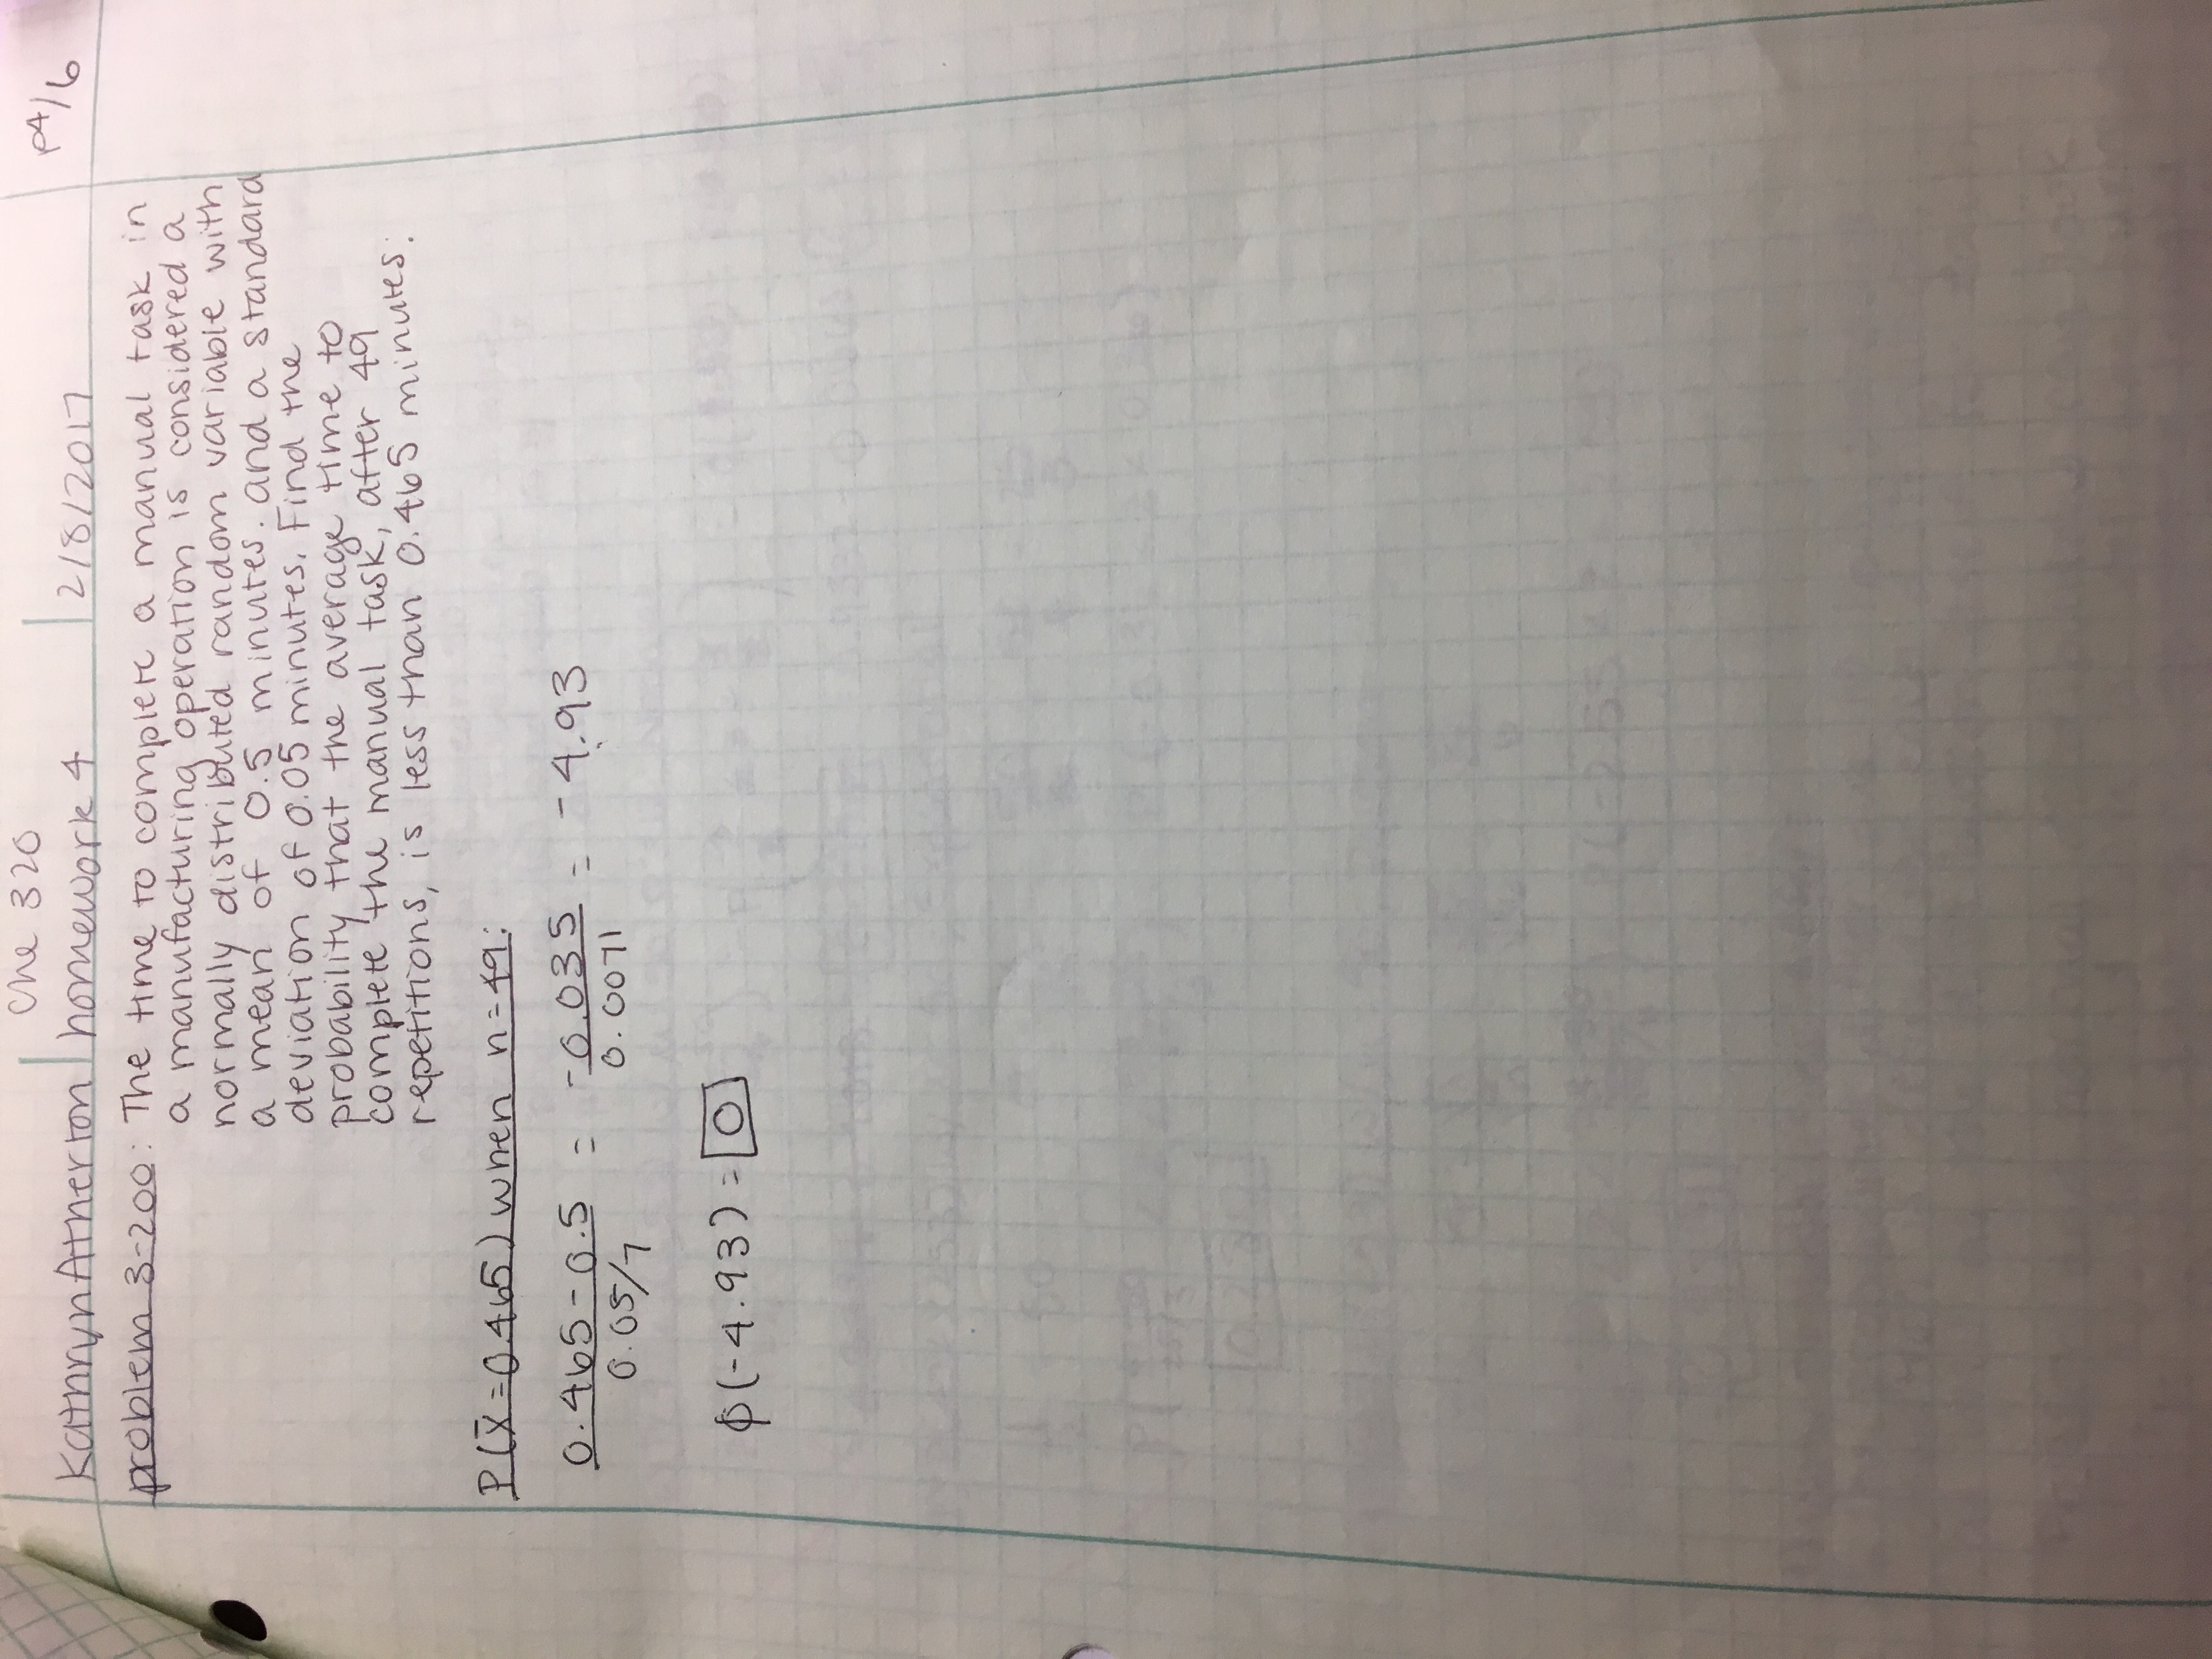 Che 320
Kathryn Atherton homework 4 2/8/2017 p4/6
problem 3-200: The time to complete a manual task in
a manufacturing operation is considered a
normally distributed random variable with
a mean of 0.5 minutes. and a standard
deviation of 0.05 minutes. Find the
probability that the average time to
complete the manual task, after 49
repetitions, is less than 0.465 minutes:
P(x̄=0.465) when n=49:
0.465-0.5 = -0.035 = -4.93
0.05/7 0.0071
ϕ(-4.93) = 0